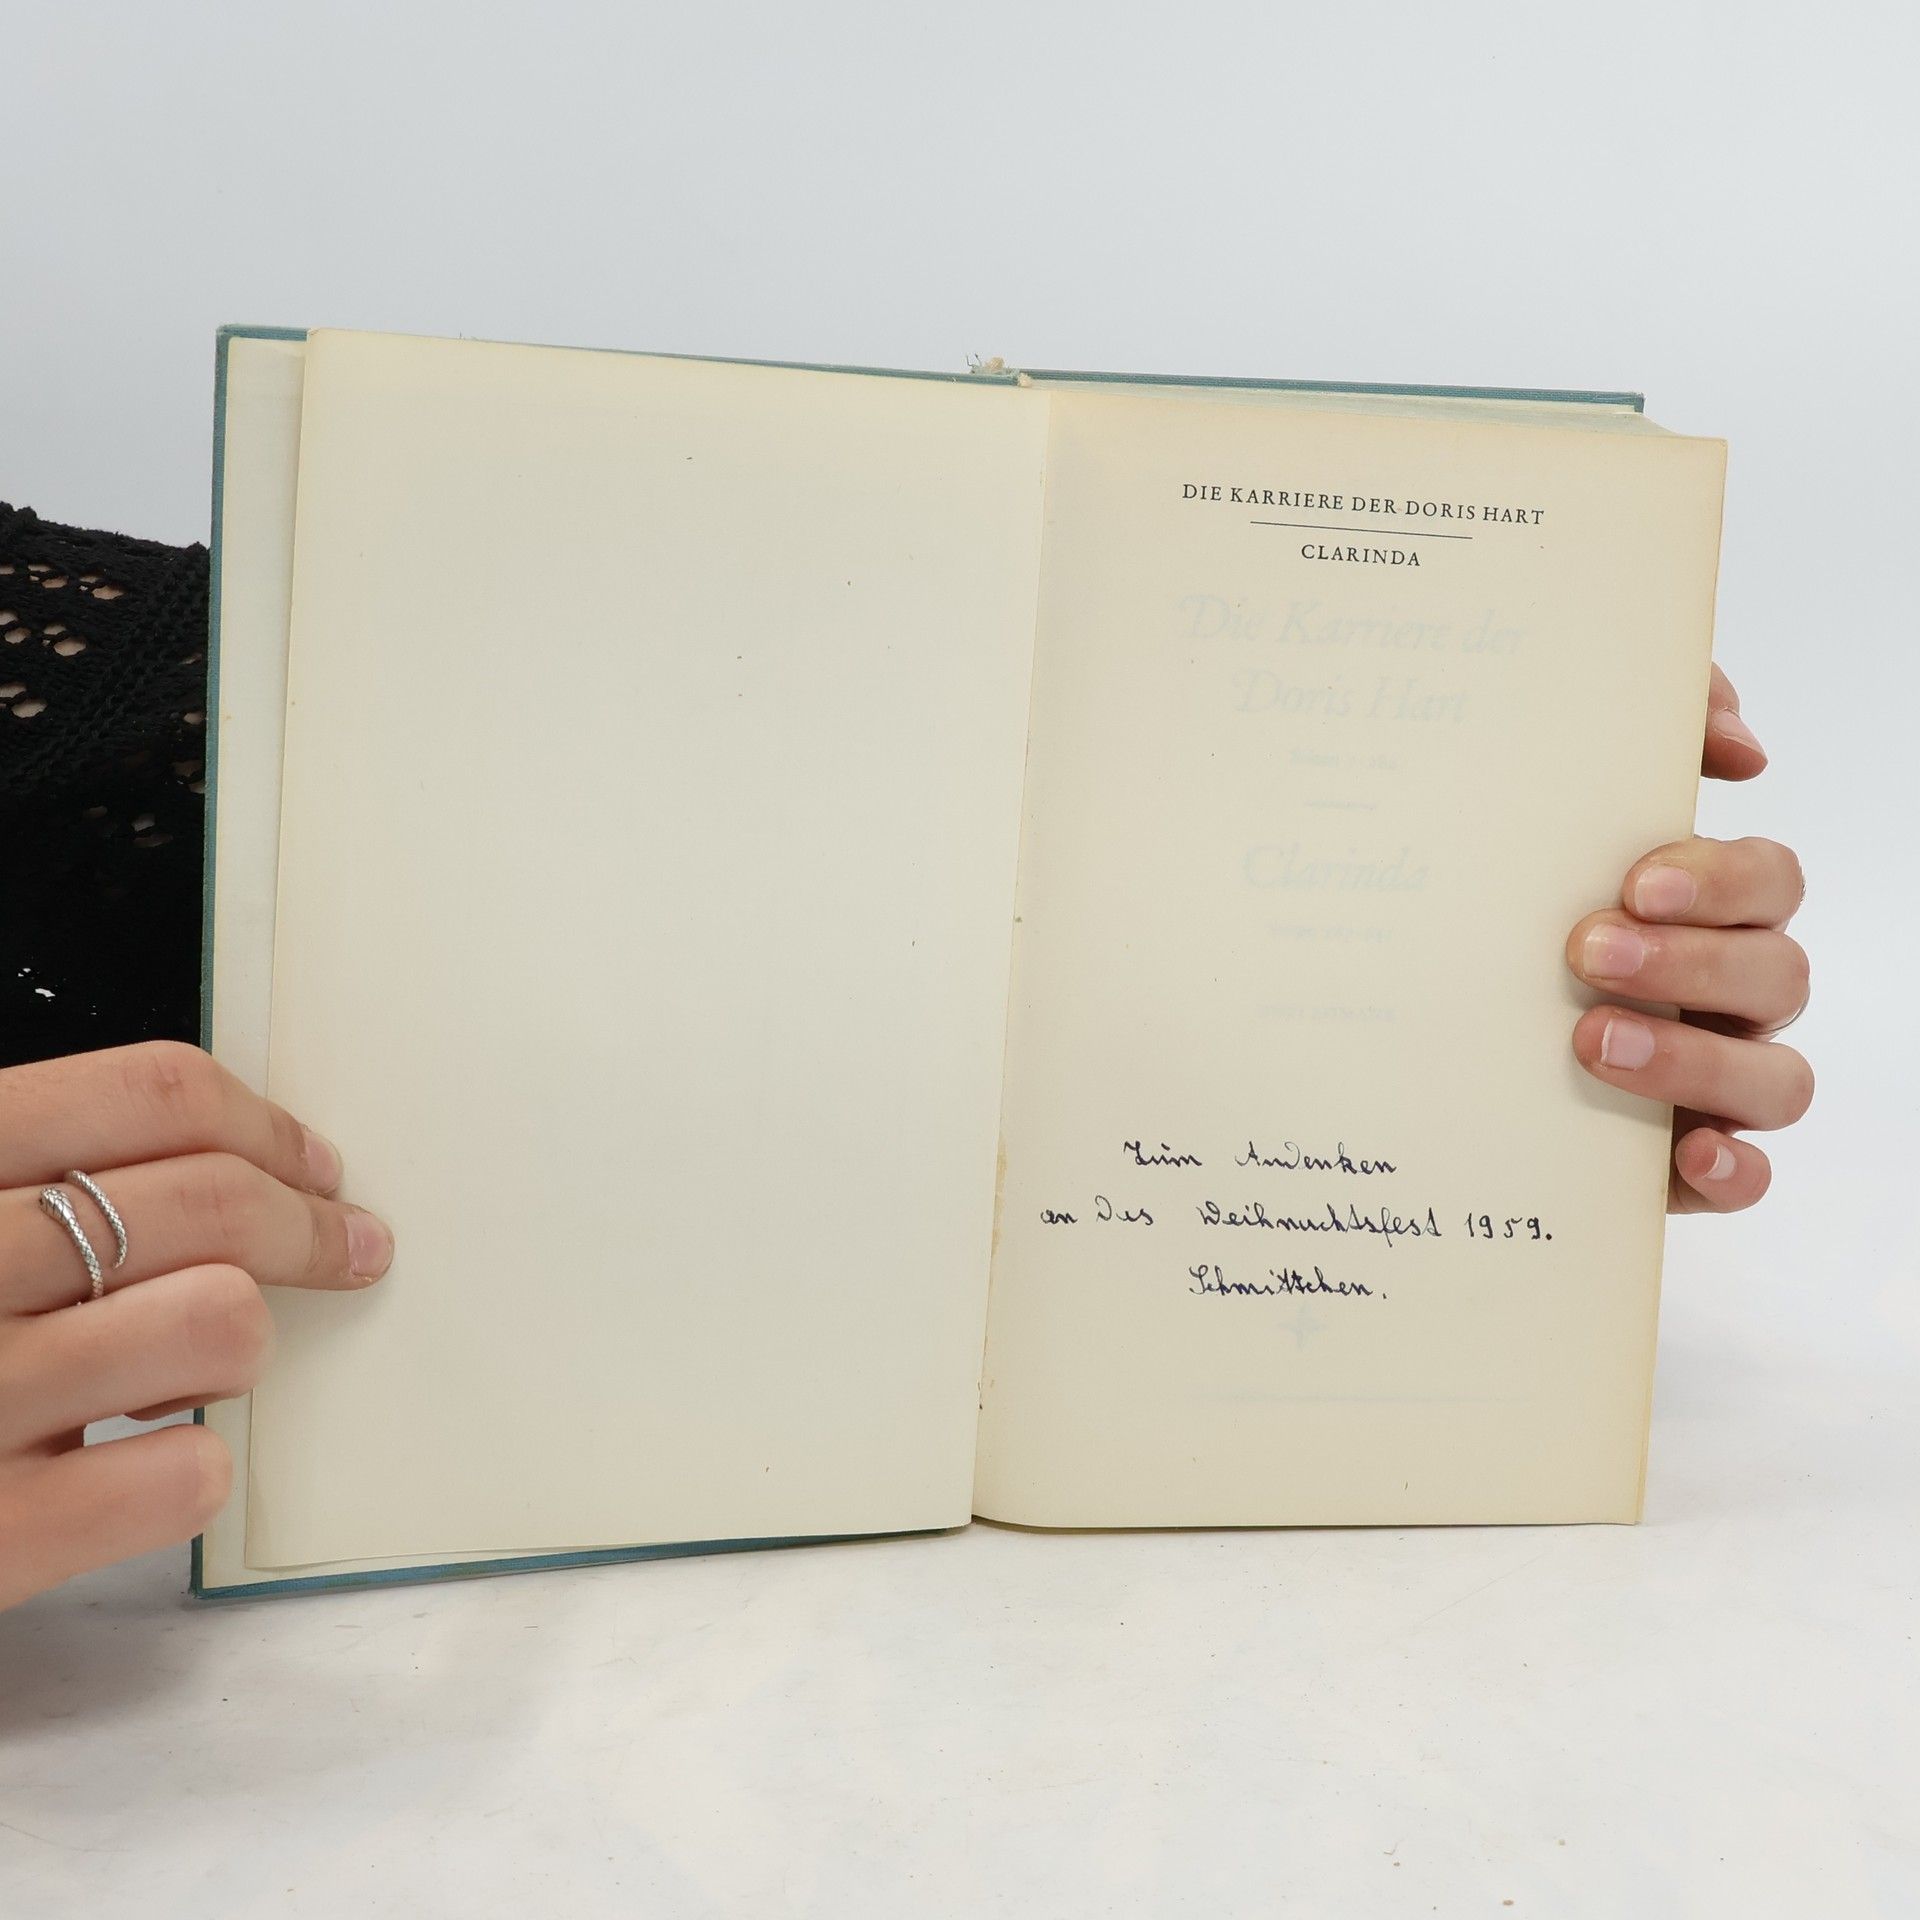 DIE KARRIERE DER DORIS HART
CLARINDA
Die Karriere der
Doris Hart
Clarinda
Zum Andenken
an das Weihnachtsfest 1959.
Schmittchen.